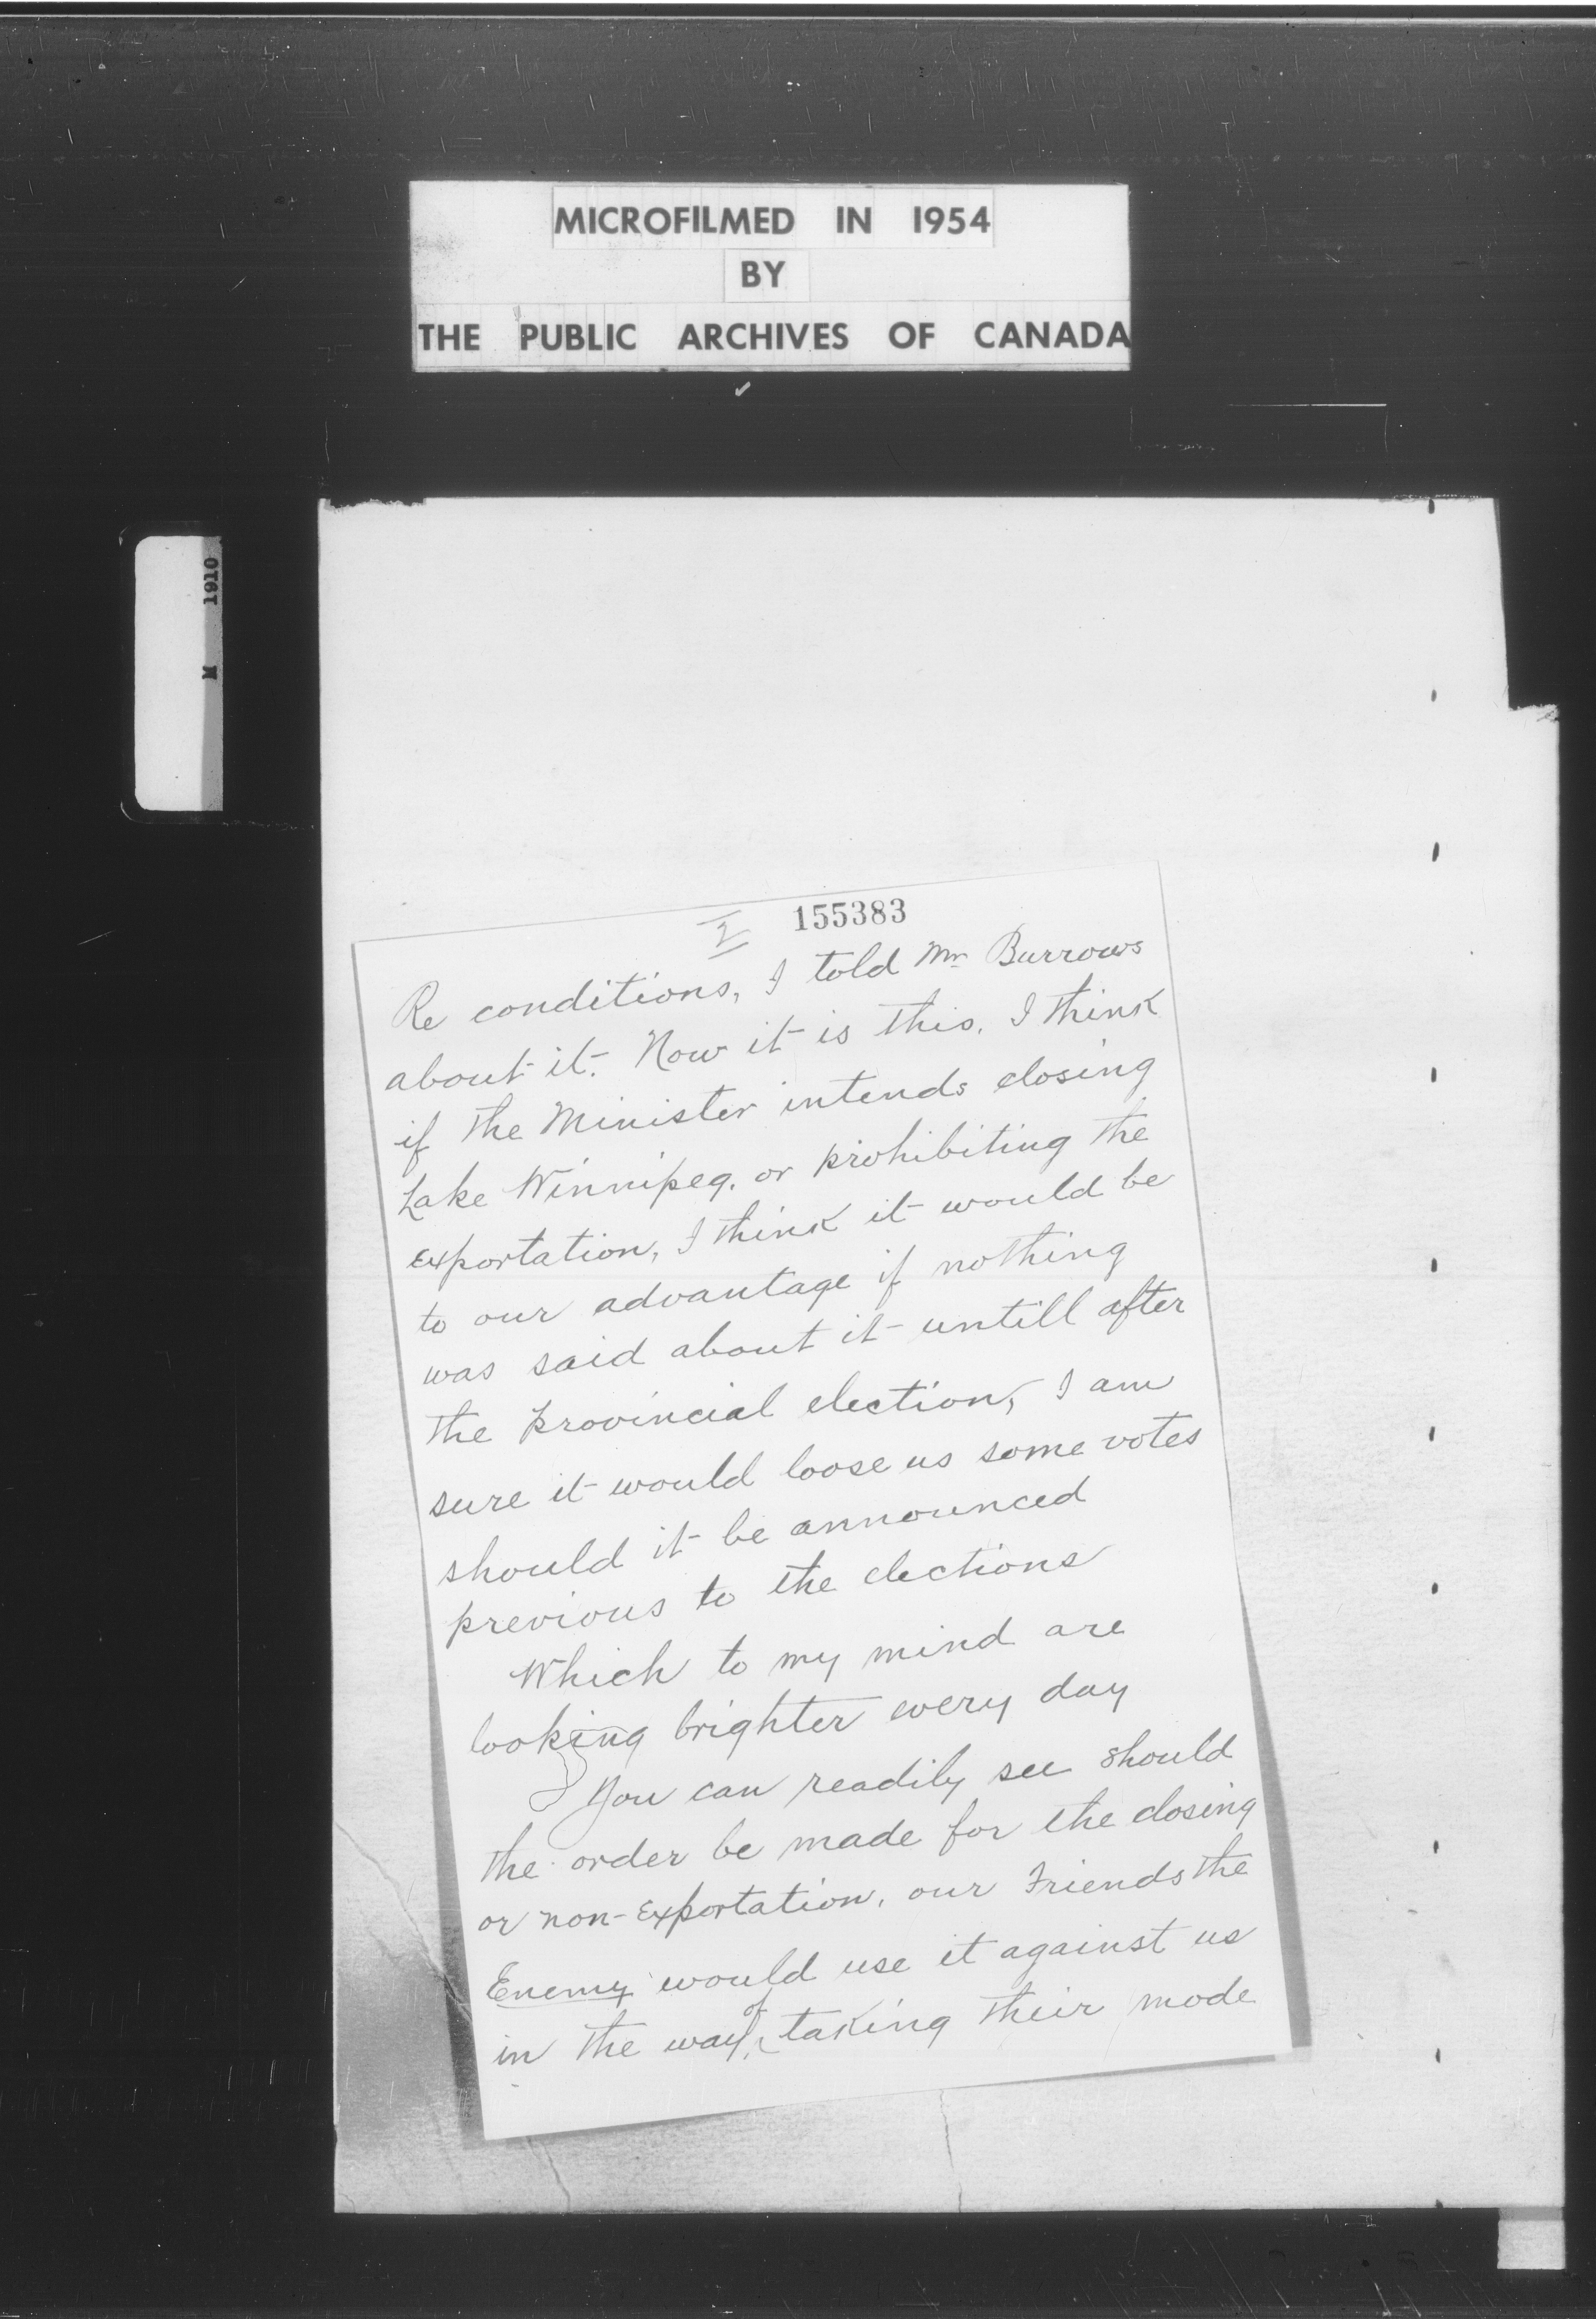 MICROFILMED IN 1954
BY
THE PUBLIC ARCHIVES OF CANADA
M 1910
2 155383
Re conditions, I told Mr Burrows
about it. Now it is this. I think
if the Minister intends closing
Lake Winnipeg. or prohibiting the
exportation, I think it would be
to our advantage if nothing
was said about it untill after
the provincial election, I am
sure it would loose us some votes
should it be announced
previous to the elections
Which to my mind are
looking brighter every day
You can readily see should
the order be made for the closing
or non-Exportation, our Friends the
Enemy would use it against us
in the way of taking their mode